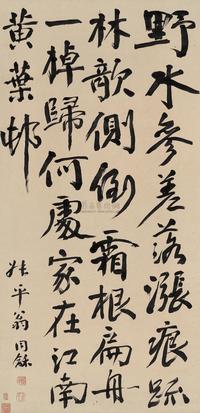 野水參差落漲痕疏
林欹側倒霜根扁舟
一棹歸何處家在江南
黃葉邨
叔平翁同龢